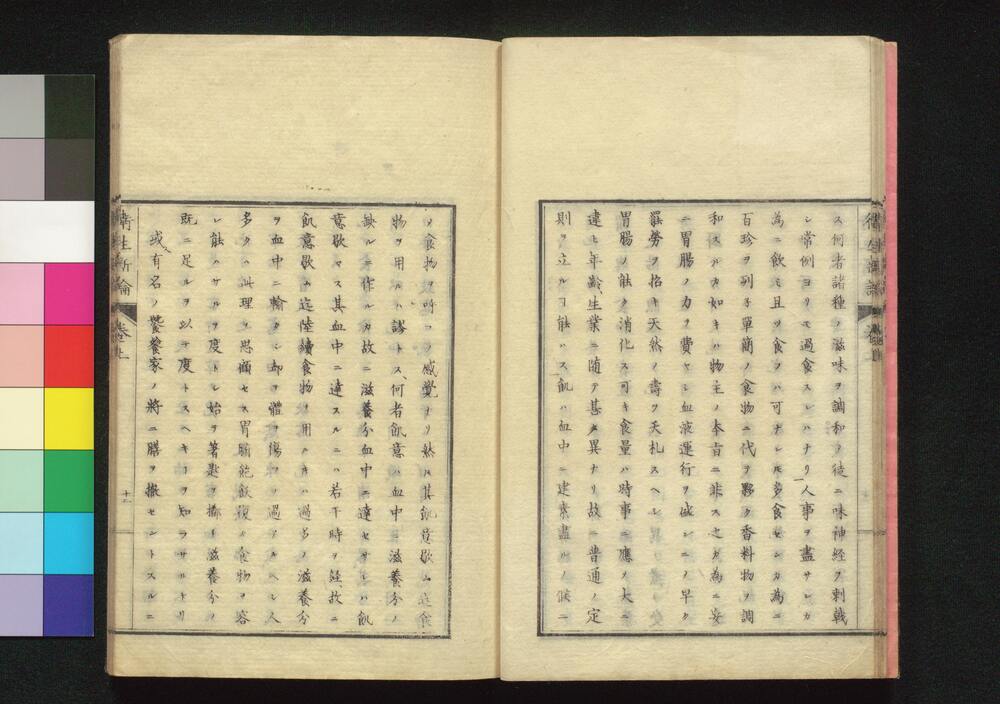 ス何者諸種ノ滋味ヲ調和ノ徒ニ味神経ヲ刺戟
シ常例ヨリモ過食スレハナリ人事ヲ盡サレカ
為ニ飲ミ且ツ食フハ可ナレ𪜈多食センカ為ニ
百珍ヲ列子單簡ノ食物ニ代ヲ夥ク香料物ヲ調
和スルカ如キハ物主ノ本旨ニ非ス之カ為ニ妄
ニ胃腸ノ力ヲ費ヤシ血液運行ヲ減シニノ早ク
罷労ヲ招キ天然ノ壽ヲ夭札スヘシ
胃腸ノ能ク消化ス可キ食量ハ時事ニ應ノ大ニ
違ヒ年齢生業ニ随テ甚タ異ナリ故ニ普通ノ定
則ヲ立ルヿ能ハス飢ハ血中ニ建素盡ルノ候ニ
ノ食物ヲ呼フノ感覺ナリ然ルニ其飢意歇ム迄食
物ヲ用ルハ謬トス何者飢意ハ血中ニ滋養分ノ
缺ルニ作ルカ故ニ滋養分血中ニ達セサレハ飢
意歇マス其血中ニ達スルニハ若干時ヲ経故ニ
飢意歇ム迄陸續食物ヲ用ルキハ過多ノ滋養分
ヲ血中ニ輸タシ却ヲ體ヲ傷フ過アルヘシ人
多クハ此理ヲ思痛セス胃腑飽飲復ノ食物ヲ容
レ能ハサルヲ度トレ始ヲ箸匙ヲ擲ケ滋養分ノ
既ニ足ルヲ以テ度トスヘキヿヲ知ラサルナリ
或有名ノ饕餮家ノ將ニ膳ヲ撤セントスルニ
衛生新論 巻上 十二